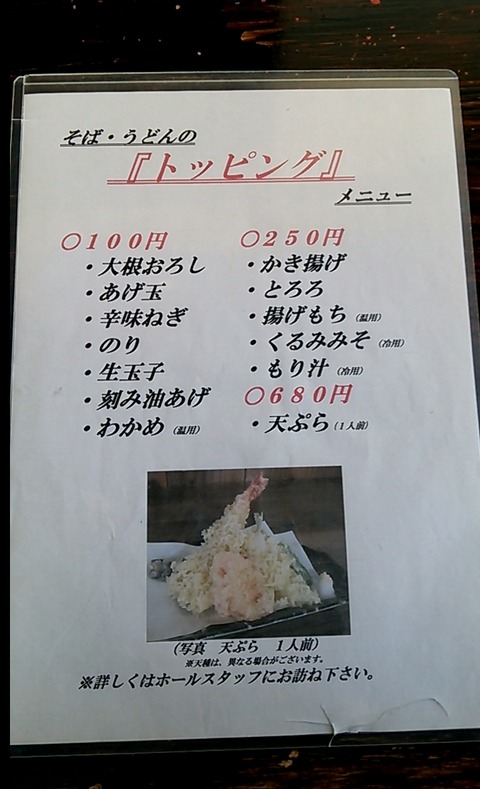 そば・うどんの
『トッピング』
メニュー
○100円
・大根おろし
・あげ玉
・辛味ねぎ
・のり
・生玉子
・刻み油あげ
・わかめ（温用）
○250円
・かき揚げ
・とろろ
・揚げもち（温用）
・くるみみそ（冷用）
・もり汁（冷用）
○680円
・天ぷら（1人前）
（写真　天ぷら　1人前）
※天種は、異なる場合がございます。
※詳しくはホールスタッフにお訪ね下さい。